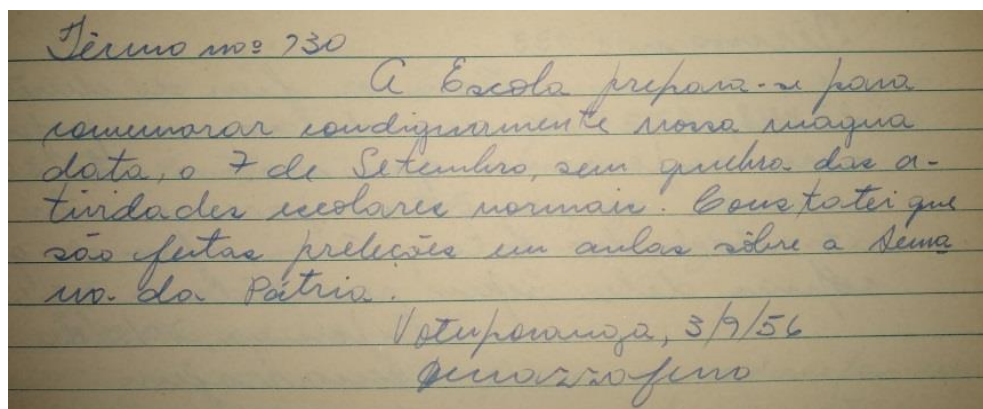 Têrmo nº 730
A Escola prepara-se para
comemorar condignamente nossa magna
data, o 7 de Setembro, sem quebra das a-
tividades escolares normais. Constatei que
são feitas preleções em aulas sôbre a Sema
na da Pátria.
Votuporanga, 3/9/56